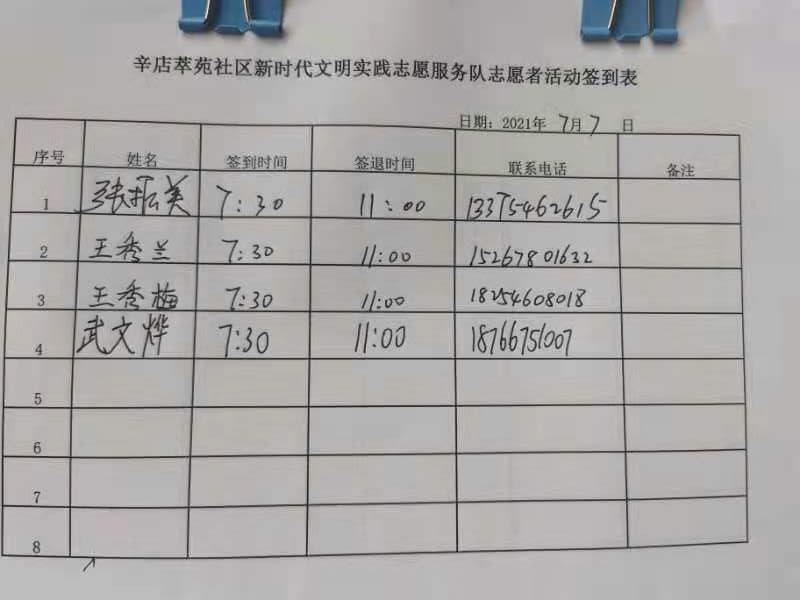 辛店萃苑社区新时代文明实践志愿服务队志愿者活动签到表
日期：2021年 7月7 日
序号 姓名 签到时间 签退时间 联系电话 备注
1 张振美 7:30 11:00 13375462615
2 王秀兰 7:30 11:00 15267801632
3 王秀梅 7:30 11:00 18254608018
4 武文烨 7:30 11:00 18766751007
5
6
7
8